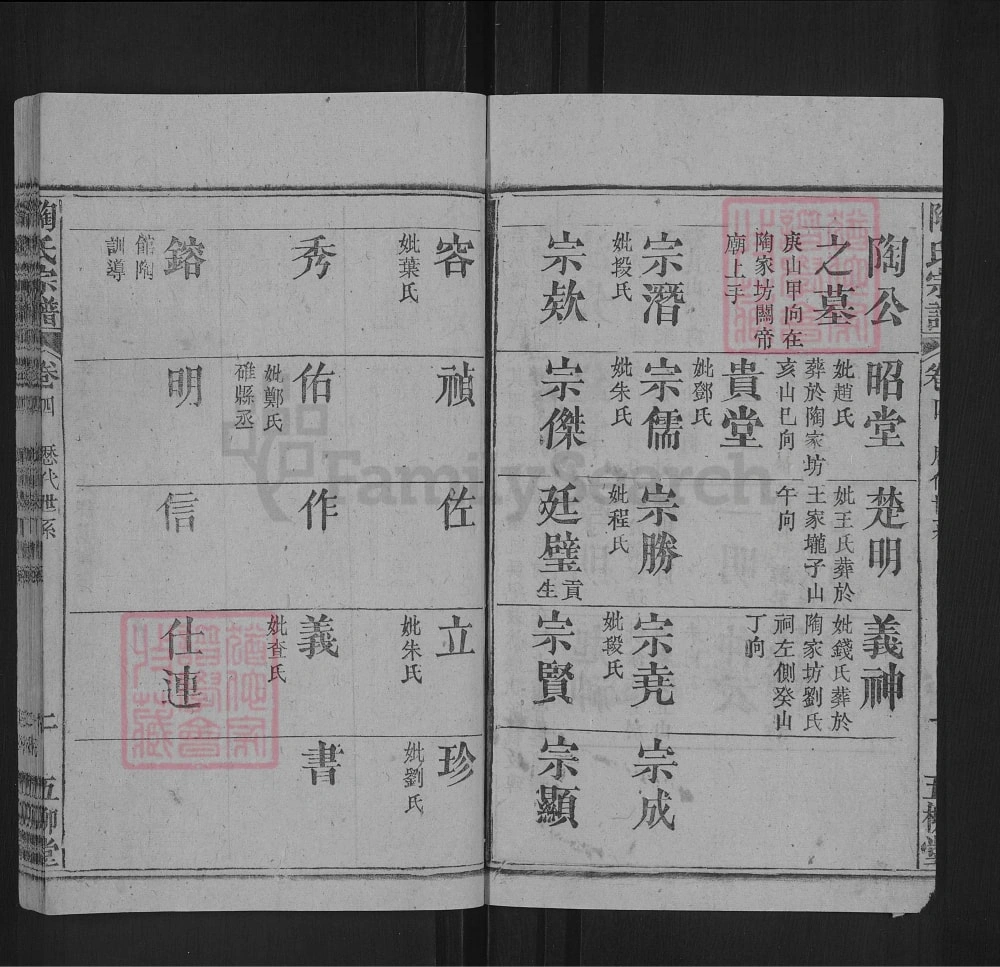 陶氏宗譜
五柳堂
陶公
之墓
庚山甲向在
陶家坊關帝
廟上手
昭堂
妣趙氏
葬於陶家坊
亥山巳向
貴堂
妣鄧氏
楚明
妣王氏葬於
王家壠子山
午向
義神
妣錢氏葬於
陶家坊劉氏
祠左側癸山
丁向
宗潛
妣段氏
宗儒
妣朱氏
宗勝
妣程氏
宗堯
妣段氏
宗成
宗欸
宗傑
廷璧
貢生
宗賢
宗顯
容
妣葉氏
禎
佐
立
妣朱氏
珍
妣劉氏
秀
佑
妣鄭氏
碓縣丞
作
義
妣查氏
書
鎔
館陶
訓導
明
信
仕連
陶氏宗譜
卷四
歷代世系
五柳堂
FamilySearch